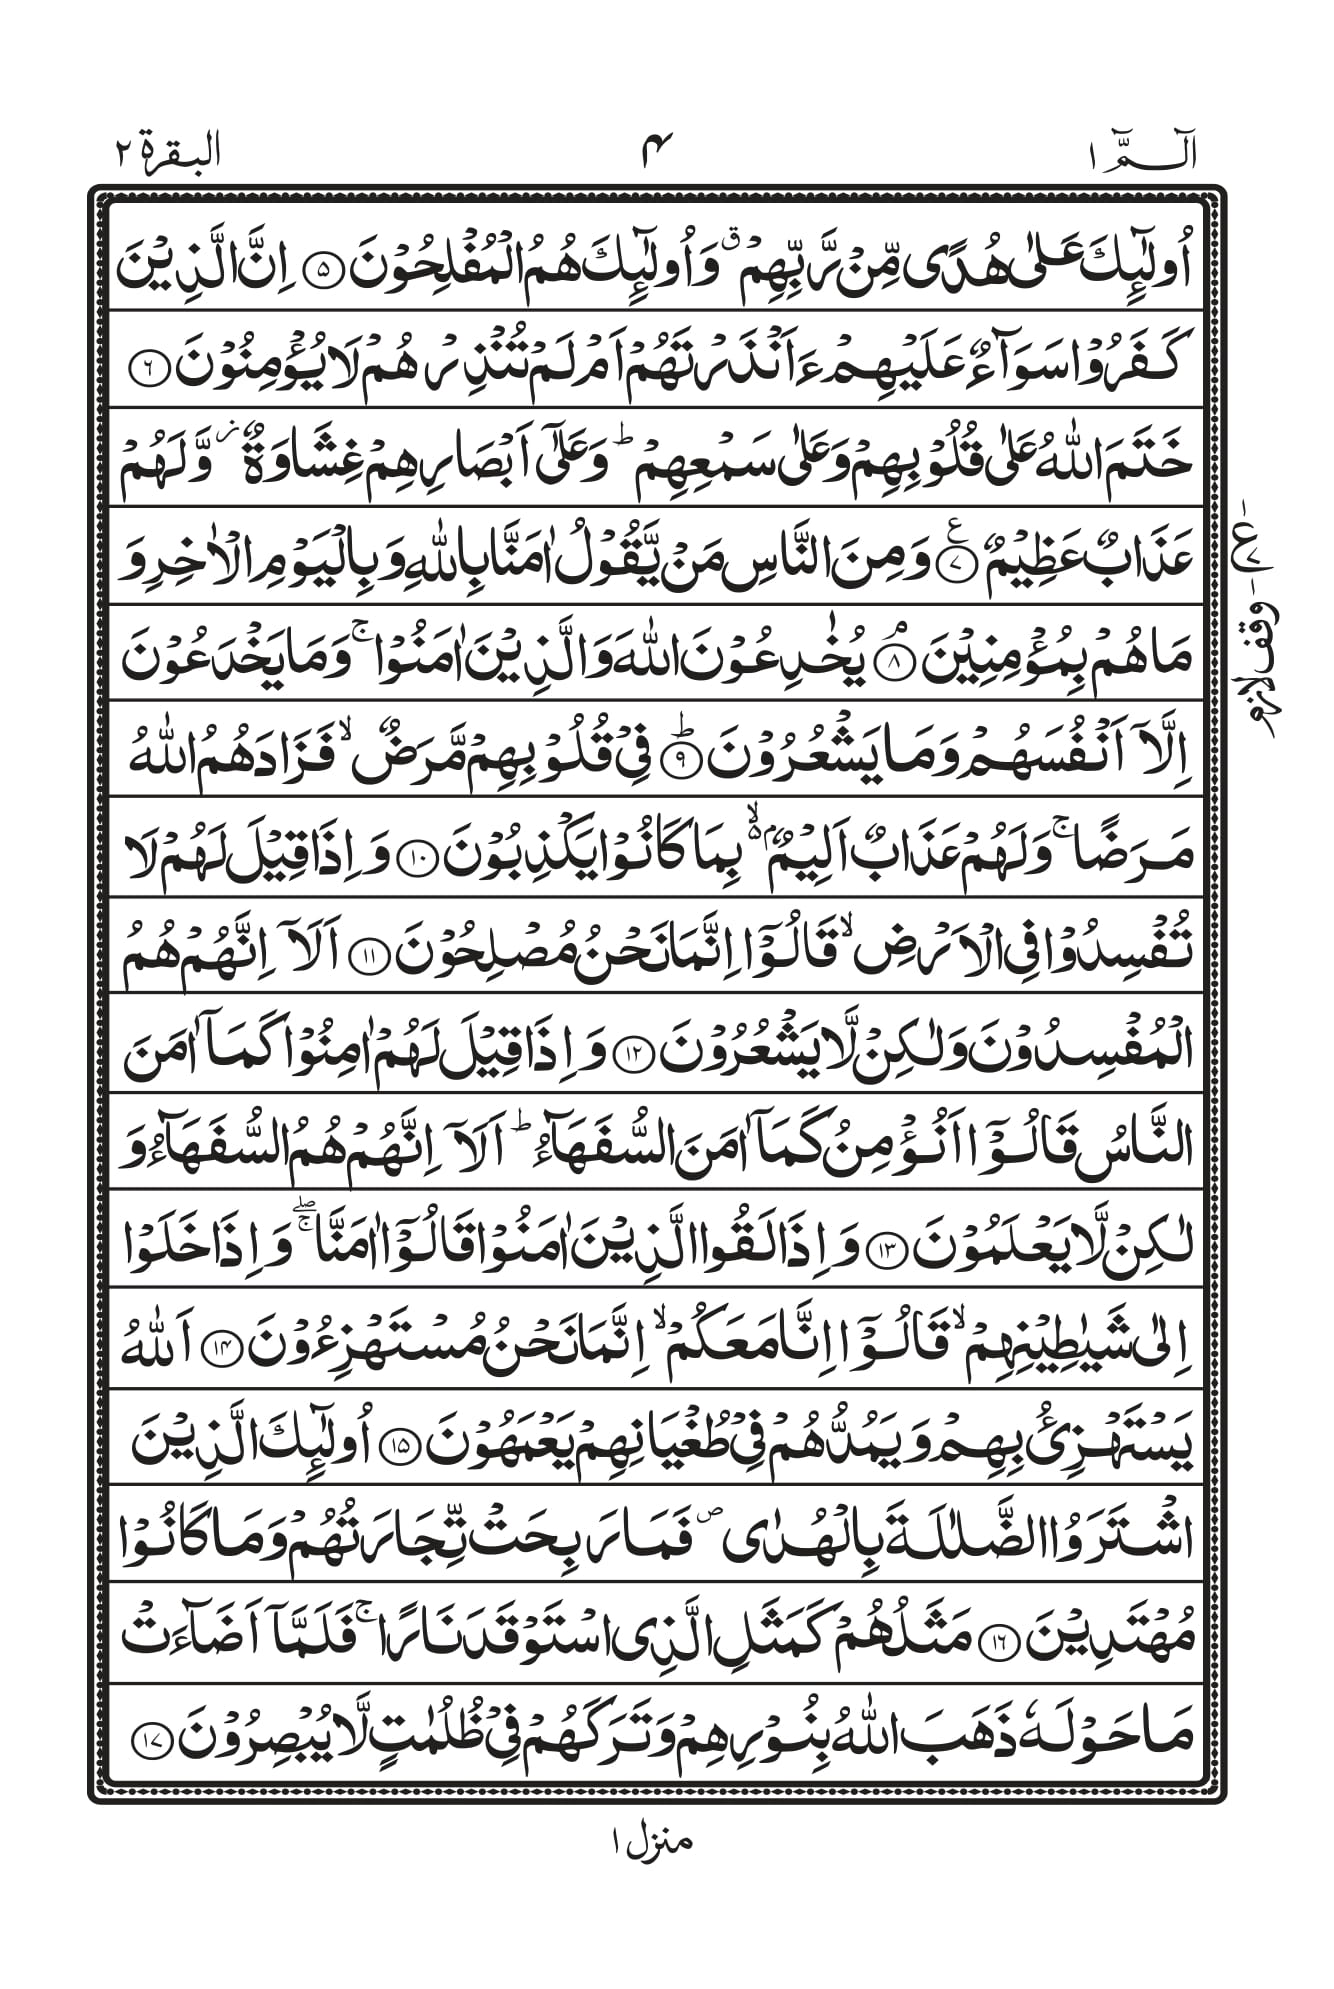 الٓـمّٓ ١
٤
البقرة ٢
اُولٰٓئِكَ عَلٰى هُدًى مِّنْ رَّبِّهِمْ ۗ وَاُولٰٓئِكَ هُمُ الْمُفْلِحُوْنَ ۝٥ اِنَّ الَّذِيْنَ
كَفَرُوْا سَوَآءٌ عَلَيْهِمْ ءَاَنْذَرْتَهُمْ اَمْ لَمْ تُنْذِرْهُمْ لَا يُؤْمِنُوْنَ ۝٦
خَتَمَ اللّٰهُ عَلٰى قُلُوْبِهِمْ وَعَلٰى سَمْعِهِمْ ؕ وَعَلٰٓى اَبْصَارِهِمْ غِشَاوَةٌ ؗ وَّلَهُمْ
عَذَابٌ عَظِيْمٌ ۝٧ ع وَمِنَ النَّاسِ مَنْ يَّقُوْلُ اٰمَنَّا بِاللّٰهِ وَبِالْيَوْمِ الْاٰخِرِ وَ
مَا هُمْ بِمُؤْمِنِيْنَ ۝٨ۘ يُخٰدِعُوْنَ اللّٰهَ وَالَّذِيْنَ اٰمَنُوْا ۚ وَمَا يَخْدَعُوْنَ
اِلَّآ اَنْفُسَهُمْ وَمَا يَشْعُرُوْنَ ۝٩ؕ فِيْ قُلُوْبِهِمْ مَّرَضٌ ۙ فَزَادَهُمُ اللّٰهُ
مَرَضًا ۚ وَلَهُمْ عَذَابٌ اَلِيْمٌۢ ۙ۬ بِمَا كَانُوْا يَكْذِبُوْنَ ۝١٠ وَاِذَا قِيْلَ لَهُمْ لَا
تُفْسِدُوْا فِي الْاَرْضِ ۙ قَالُوْٓا اِنَّمَا نَحْنُ مُصْلِحُوْنَ ۝١١ اَلَآ اِنَّهُمْ هُمُ
الْمُفْسِدُوْنَ وَلٰكِنْ لَّا يَشْعُرُوْنَ ۝١٢ وَاِذَا قِيْلَ لَهُمْ اٰمِنُوْا كَمَآ اٰمَنَ
النَّاسُ قَالُوْٓا اَنُؤْمِنُ كَمَآ اٰمَنَ السُّفَهَآءُ ؕ اَلَآ اِنَّهُمْ هُمُ السُّفَهَآءُ وَ
لٰكِنْ لَّا يَعْلَمُوْنَ ۝١٣ وَاِذَا لَقُوا الَّذِيْنَ اٰمَنُوْا قَالُوْٓا اٰمَنَّا ۖۚ وَاِذَا خَلَوْا
اِلٰى شَيٰطِيْنِهِمْ ۙ قَالُوْٓا اِنَّا مَعَكُمْ ۙ اِنَّمَا نَحْنُ مُسْتَهْزِءُوْنَ ۝١٤ اَللّٰهُ
يَسْتَهْزِئُ بِهِمْ وَيَمُدُّهُمْ فِيْ طُغْيَانِهِمْ يَعْمَهُوْنَ ۝١٥ اُولٰٓئِكَ الَّذِيْنَ
اشْتَرَوُا الضَّلٰلَةَ بِالْهُدٰى ۪ فَمَا رَبِحَتْ تِّجَارَتُهُمْ وَمَا كَانُوْا
مُهْتَدِيْنَ ۝١٦ مَثَلُهُمْ كَمَثَلِ الَّذِى اسْتَوْقَدَ نَارًا ۚ فَلَمَّآ اَضَآءَتْ
مَا حَوْلَهٗ ذَهَبَ اللّٰهُ بِنُوْرِهِمْ وَتَرَكَهُمْ فِيْ ظُلُمٰتٍ لَّا يُبْصِرُوْنَ ۝١٧
ع ٧
وقف لازم
منزل ١